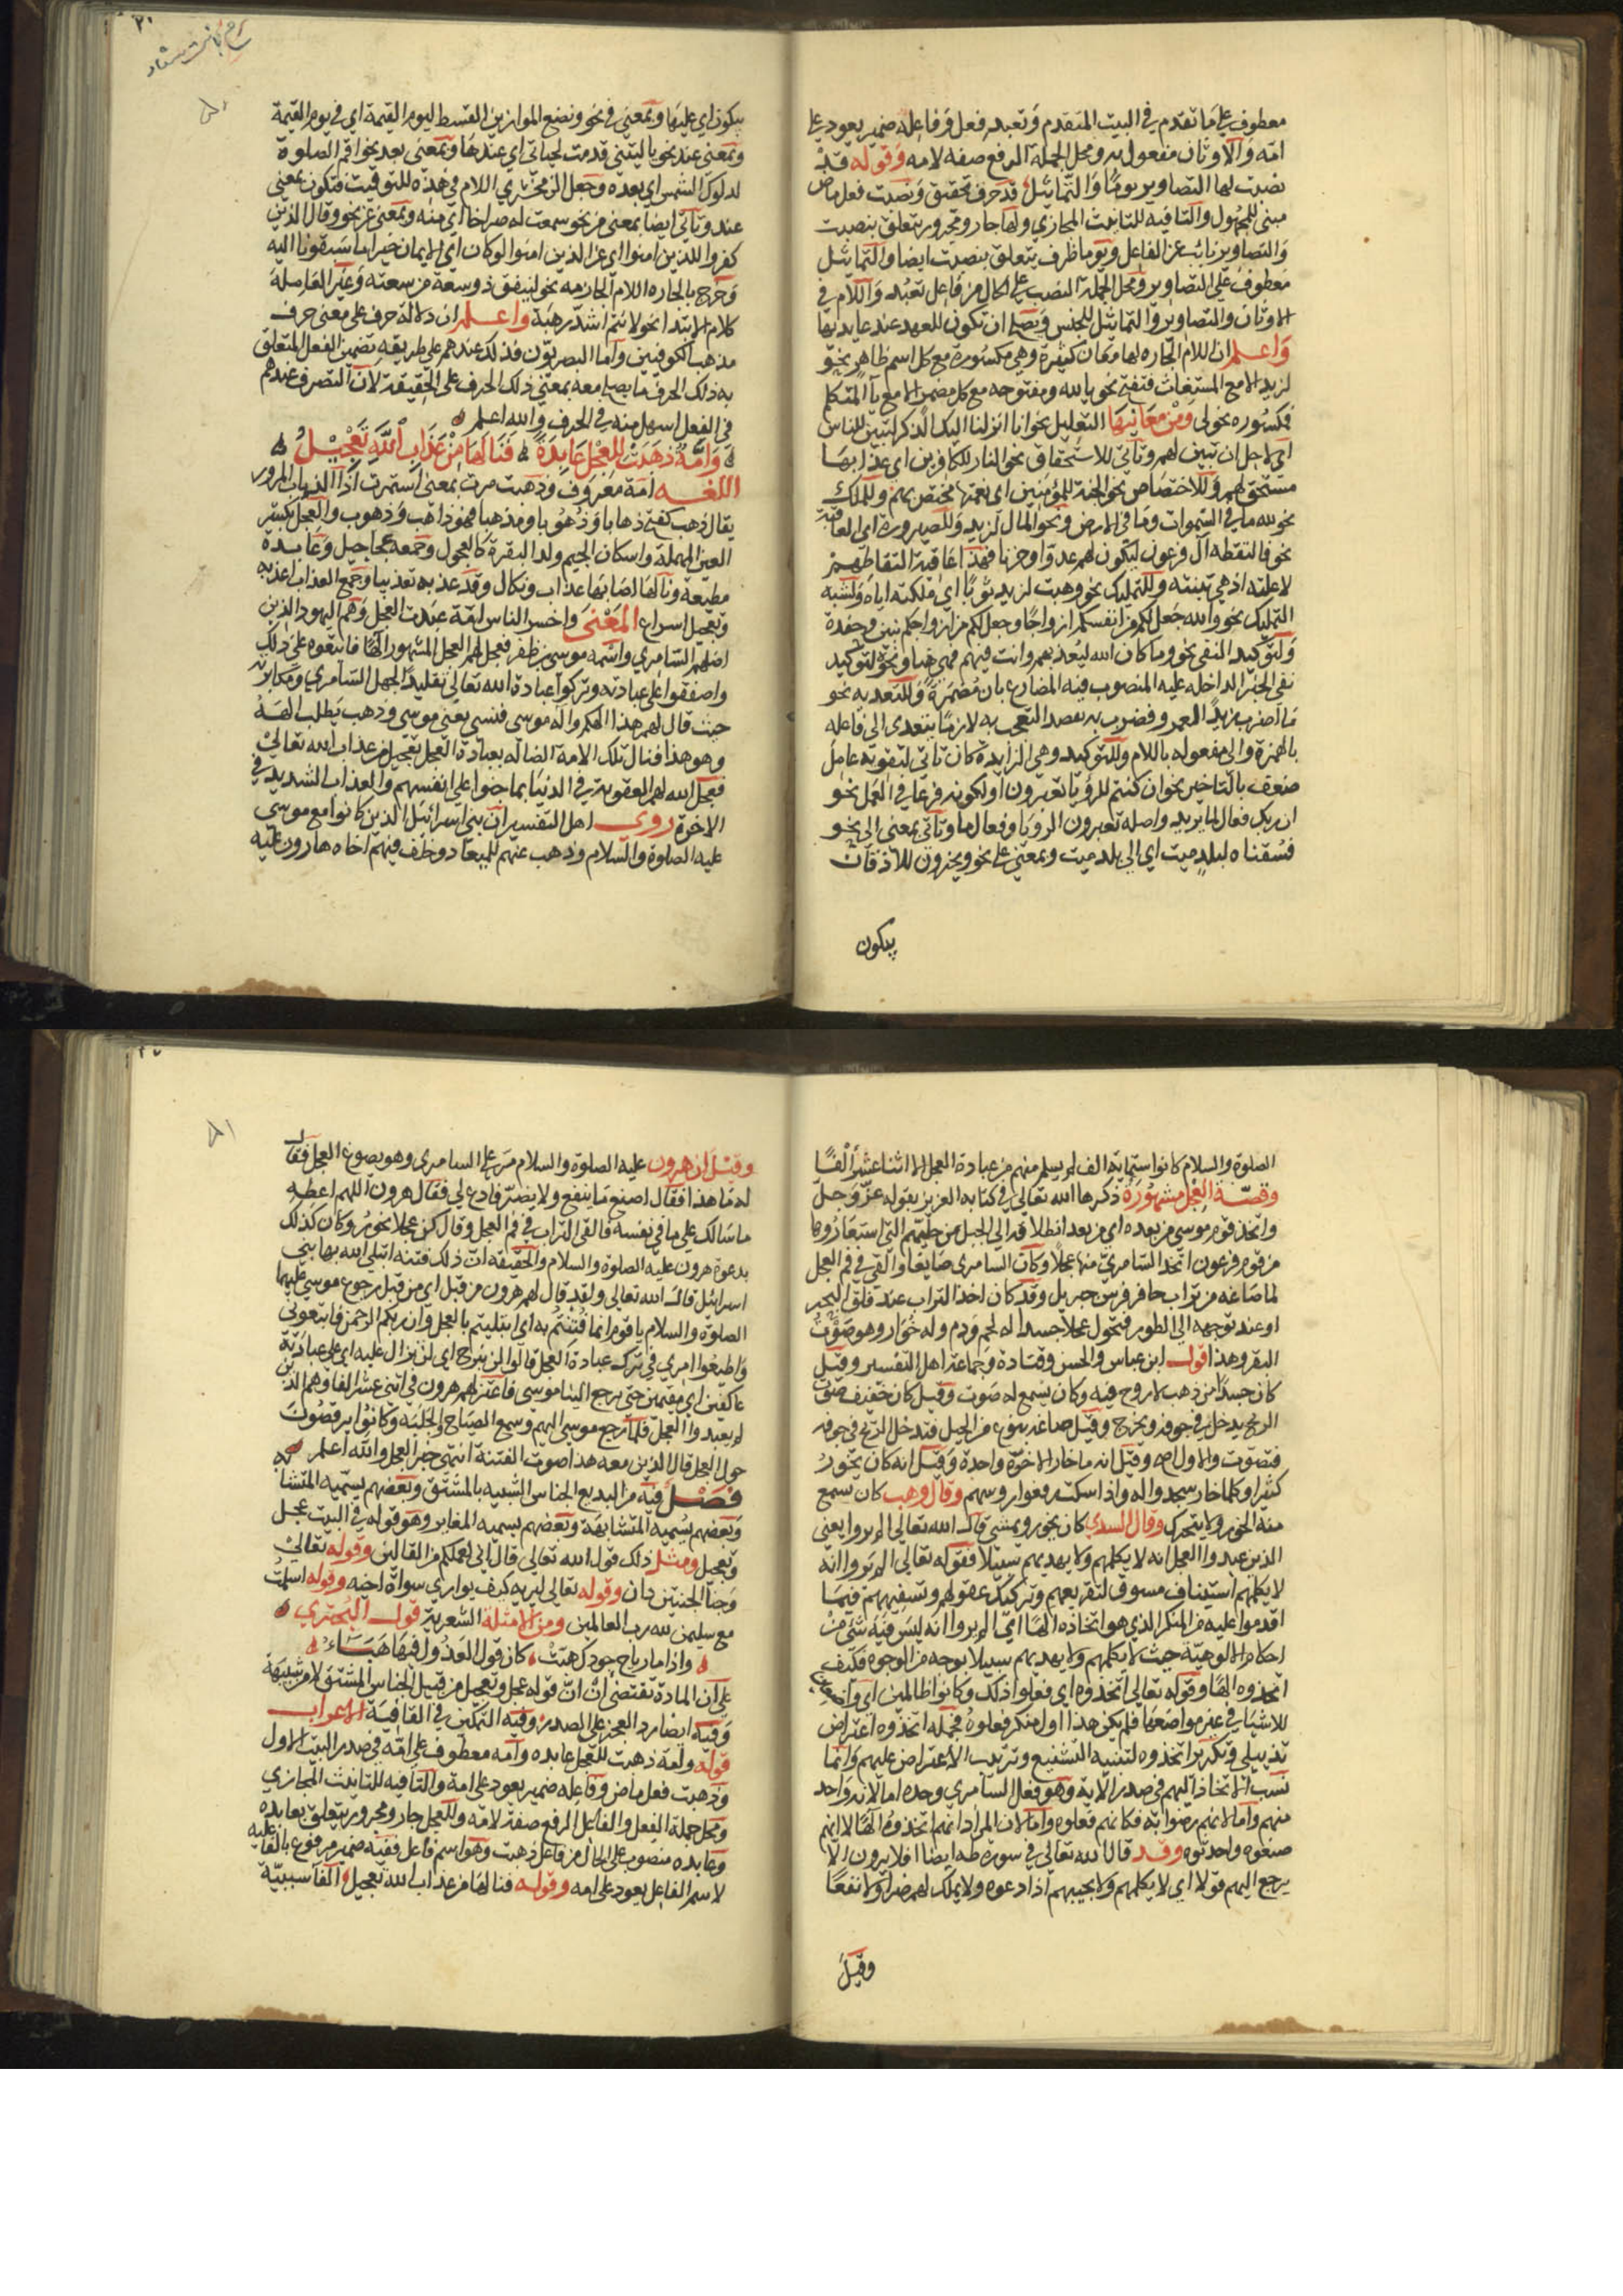 معطوف على ما تقدم في البيت المتقدم وتعبد فعل وفاعله ضمير يعود على
امة والاوثان مفعول به ومحل الجملة الرفع صفة لامه وقوله قد
نصبت لها التصاوير يوما والتماثيل قد حرف تحقيق ونصبت فعل ماض
مبني للمجهول والتا فيه للتانيث المجازي ولها جار ومجرور يتعلق بنصبت
والتصاوير نائب عن الفاعل ويوما ظرف يتعلق بنصبت ايضا والتماثيل
معطوف على التصاوير ومحل الجملة النصب على الحال من فاعل تعبد واللام في
الاوثان والتصاوير والتماثيل للجنس ويصلح ان تكون للعهد عند عابديها
واعلم ان اللام الجاره لها معان كثيرة وهي مكسورة مع كل اسم ظاهر نحو
لزيد الا مع المستغاث فتفتح نحو يا لله ومفتوحه مع كل مضمر الا مع يا المتكلم
فمكسوره نحو لي ومن معانيها التعليل نحو انا انزلنا اليك الذكر لتبين للناس
اي لاجل ان تبين لهم وتاتي للاستحقاق نحو النار للكافرين اي عذابها
مستحق لهم وللاختصاص نحو الجنة للمؤمنين اي نعيمها مختص بهم وللملك
نحو لله ما في السموات وما في الارض ونحو المال لزيد وللصيرورة اي العاقبة
نحو فالتقطه آل فرعون ليكون لهم عدوا وحزنا فهذا عاقبة التقاطهم
لا علته اذ هي تبنته وللتمليك نحو وهبت لزيد ثوبا اي ملكته اياه ولشبه
التمليك نحو والله جعل لكم من انفسكم ازواجا وجعل لكم من ازواجكم بنين وحفدة
ولتوكيد النفي نحو وما كان الله ليعذبهم وانت فيهم فهي هنا ونحوه لتوكيد
نفي الخبر الداخله عليه المنصوب فيه المضارع بان مضمرة وللتعديه نحو
ما اضرب زيدا لعمرو فضرب بقصد التعجب به لازما يتعدى الى فاعله
بالهمزة والى مفعوله باللام وللتوكيد وهي الزايدة كان تاتي لتقوية عامل
ضعف بالتاخير نحو ان كنتم للرؤيا تعبرون او لكونه فرعا في العمل نحو
ان ربك فعال لما يريد واصله تعبرون الرويا وفعال ما وتاتي بمعنى الى نحو
فسقناه لبلد ميت اي الى بلد ميت وبمعنى على نحو ويخرون للاذقان
يبكون
يبكون اي عليها وبمعنى في نحو ونضع الموازين القسط ليوم القيمة اي في يوم القيمة
وبمعنى عند نحو يا ليتني قدمت لحياتي اي عندها وبمعنى بعد نحو اقم الصلوة
لدلوك الشمس اي بعده وجعل الزمخشري اللام في هذه للتوقيت فتكون بمعنى
عند وتاتي ايضا بمعنى من نحو سمعت له صراخا اي منه وبمعنى عن نحو وقال الذين
كفروا للذين امنوا اي عن الذين امنوا لو كان اي الايمان خيرا ما سبقونا اليه
وخرج بالجاره اللام الجازمه نحو لينفق ذو سعة من سعته وغير العاملة
كلام الابتدا نحو لانتم اشد رهبة واعلم ان دلالة حرف على معنى حرف
مذهب الكوفيين واما البصريون فذلك عندهم على طريقه تضمين الفعل المتعلق
به ذلك الحرف ما يصلح معه بمعنى ذلك الحرف على الحقيقة لان التصرف عندهم
في الفعل اسهل منه في الحرف والله اعلم
وامة ذهبت للعجل عابدة فنالها من عذاب الله تعجيل
اللغه امة معروف وذهبت مرت بمعنى استمرت اذ الذهاب المرور
يقال ذهب كفتح ذهابا وذهوبا ومذهبا فهو ذاهب وذهوب والعجل بكسر
العين المهملة واسكان الجيم ولد البقرة كالعجول وجمعه عجاجيل وعابدة
مطيعة ونالها اصابها عذاب ونكال وقد عذبه تعذيبا وجمع العذاب اعذبه
وتعجيل اسراع المعنى واخسر الناس امة عبدت العجل وهم اليهود الذين
اضلهم السامري واسمه موسى بن ظفر فجعل لهم العجل المشهور الها فاتبعوه على ذلك
واصفقوا على عبادته وتركوا عبادة الله تعالى تقليدا لجهل السامري ومكابرة
حيث قال لهم هذا الهكم واله موسى فنسي يعني موسى وذهب يطلب الهه
وهو هذا فنال تلك الامة الضاله بعبادة العجل تعجيل من عذاب الله تعالى
فعجل الله لهم العقوبة في الدنيا بما جنوا على انفسهم والعذاب الشديد في
الاخرة روى اهل التفسير ان بني اسرائيل الذين كانوا مع موسى
عليه الصلوة والسلام وذهب عنهم للميعاد وخلف فيهم اخاه هارون عليه
الصلوة والسلام كانوا ستماية الف لم يسلم منهم من عبادة العجل الا اثنا عشر الفا
وقصة العجل مشهورة ذكرها الله تعالى في كتابه العزيز بقوله عز وجل
واتخذ قوم موسى من بعده اي من بعد انطلاقه الى الجبل من حليهم التي استعاروها
من قوم فرعون اتخذ السامري منها عجلا وكان السامري صايغا والقى في فم العجل
لما صاغه من تراب حافر فرس جبريل وقد كان اخذ التراب عند فلق البحر
او عند توجهه الى الطور فتحول عجلا جسدا له لحم ودم وله خوار وهو صوت
البقر وهذا قول ابن عباس والحسن وقتادة وجماعة اهل التفسير وقيل
كان جسدا من ذهب لا روح فيه وكان يسمع له صوت وقيل كان خفيف صوت
الريح يدخل في جوفه ويخرج وقيل صاغه بنوع من الحيل فتدخل الريح في جوفه
فتصوت والاول اصح وقيل انه ما خار الا مرة واحدة وقيل انه كان يخور
كثيرا وكلما خار سجدوا له واذا سكت رفعوا روسهم وقال وهب كان يسمع
منه الخور ولا يتحرك وقال السدي كان يخور ويمشي قال الله تعالى الم يروا يعني
الذين عبدوا العجل انه لا يكلمهم ولا يهديهم سبيلا فقوله تعالى الم يروا انه
لا يكلمهم استيناف مسوق لتقريعهم وتركيك عقولهم وتسفيههم فيما
اقدموا عليه من المنكر الذي هو اتخاذه الها اي الم يروا انه ليس فيه شيء من
احكام الالوهية حيث لا يكلمهم ولا يهديهم سبيلا بوجه من الوجوه فكيف
اتخذوه الها وقوله تعالى اتخذوه اي فعلوا ذلك وكانوا ظالمين اي واضعين
للاشيا في غير مواضعها فلم يكن هذا اول منكر فعلوه فجملة اتخذوه اعتراض
تذييلي وتكرير اتخذوه لتثنية التشنيع وترتيب الاعتراض عليهم وانما
نسب الاتخاذ اليهم في صدر الاية وهو فعل السامري وحده اما لانه واحد
منهم واما لانهم رضوا به فكانهم فعلوه واما لان المراد انهم اتخذوه الها لا انهم
صنعوه واحدثوه وقد قال الله تعالى في سورة طه ايضا افلا يرون الا
يرجع اليهم قولا اي لا يكلمهم ولا يجيبهم اذا دعوه ولا يملك لهم ضرا ولا نفعا
وقيل
وقيل ان هرون عليه الصلوة والسلام مر على السامري وهو يصوغ العجل فقال
له ما هذا فقال اصنع ما ينفع ولا يضر فادع لي فقال هرون اللهم اعطه
ما سالك على ما في نفسه فالقى التراب في فم العجل وقال كن عجلا يخور وكان كذلك
بدعوة هرون عليه الصلوة والسلام والحقيقة ان ذلك فتنة ابتلى الله بها بني
اسرائيل قال الله تعالى ولقد قال لهم هرون من قبل اي من قبل رجوع موسى عليهما
الصلوة والسلام يا قوم انما فتنتم به اي ابتليتم بالعجل وان ربكم الرحمن فاتبعوني
واطيعوا امري في ترك عبادة العجل قالوا لن نبرح اي لن نزال عليه اي على عبادته
عاكفين اي مقيمين حتى يرجع الينا موسى فاعتزلهم هرون في اثنى عشر الفا وهم الذين
لم يعبدوا العجل فلما رجع موسى اليهم وسمع الصياح والجلبة وكانوا يرقصون
حول العجل قال الذين معه هذا صوت الفتنة انتهى خبر العجل والله اعلم
فصل فيه من البديع الجناس الشبيه بالمشتق وبعضهم يسميه المتشابه
وبعضهم يسميه المتشابهة وبعضهم يسميه المغاير وهو قوله في البيت عجل
وتعجيل ومثل ذلك قول الله تعالى قال اني لعملكم من القالين وقوله تعالى
وجنا الجنتين دان وقوله تعالى ليريه كيف يواري سواة اخيه وقوله اسلمت
مع سليمن لله رب العالمين ومن الامثلة الشعرية قول البحتري
واذا ما رياح جودك هبت كان قول العذول فيها هباء
على ان المادة تقتضي ان قوله عجل وتعجيل من قبيل الجناس المشتق لا من شبيهه
وفيه ايضا رد العجز على الصدر وفيه التمكين في القافية الاعراب
قوله وامة ذهبت للعجل عابده وامه معطوف على امة في صدر البيت الاول
وذهبت فعل ماض وفاعله ضمير يعود على امة والتا فيه للتانيث المجازي
ومحل جملة الفعل والفاعل الرفع صفة لامه وللعجل جار ومجرور يتعلق بعابده
وعابده منصوب على الحال من فاعل ذهبت وهو اسم فاعل ففيه ضمير مرفوع بالفاعليه
لاسم الفاعل يعود على امه وقوله فنالها من عذاب الله تعجيل الفا سببية